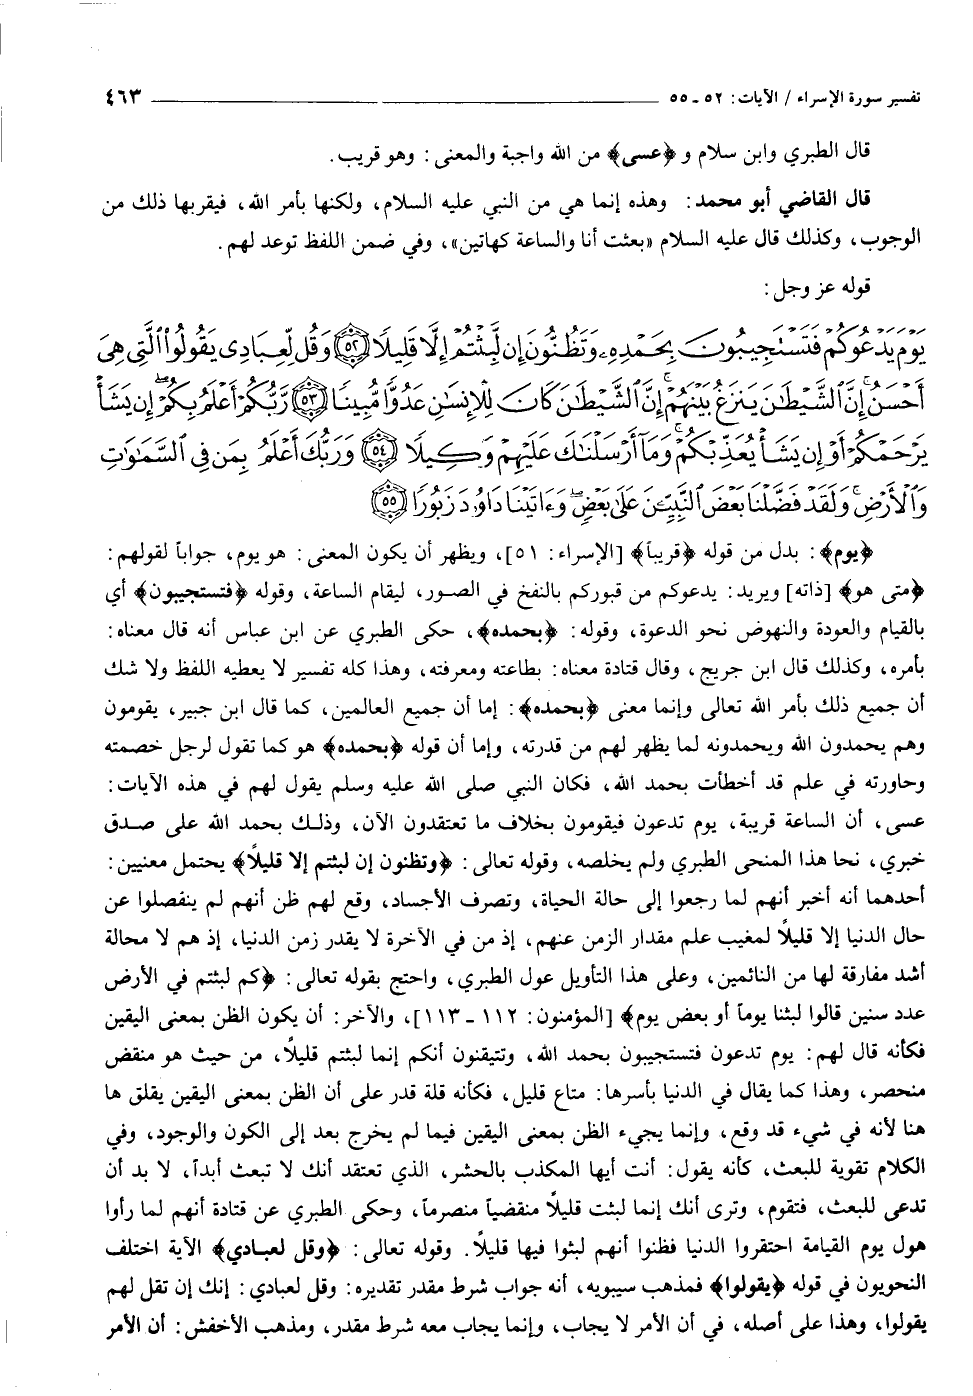 تفسير سورة الإسراء / الآيات: ٥٢ ـ ٥٥ ٤٦٣
قال الطبري وابن سلام و ﴿عسى﴾ من الله واجبة والمعنى: وهو قريب.
قال القاضي أبو محمد: وهذه إنما هي من النبي عليه السلام، ولكنها بأمر الله، فيقربها ذلك من
الوجوب، وكذلك قال عليه السلام «بعثت أنا والساعة كهاتين»، وفي ضمن اللفظ توعد لهم.
قوله عز وجل:
يَوْمَ يَدْعُوكُمْ فَتَسْتَجِيبُونَ بِحَمْدِهِۦ وَتَظُنُّونَ إِن لَّبِثْتُمْ إِلَّا قَلِيلًا ﴿٥٢﴾ وَقُل لِّعِبَادِى يَقُولُوا۟ ٱلَّتِى هِىَ
أَحْسَنُ ۚ إِنَّ ٱلشَّيْطَـٰنَ يَنزَغُ بَيْنَهُمْ ۚ إِنَّ ٱلشَّيْطَـٰنَ كَانَ لِلْإِنسَـٰنِ عَدُوًّا مُّبِينًا ﴿٥٣﴾ رَّبُّكُمْ أَعْلَمُ بِكُمْ ۖ إِن يَشَأْ
يَرْحَمْكُمْ أَوْ إِن يَشَأْ يُعَذِّبْكُمْ ۚ وَمَآ أَرْسَلْنَـٰكَ عَلَيْهِمْ وَكِيلًا ﴿٥٤﴾ وَرَبُّكَ أَعْلَمُ بِمَن فِى ٱلسَّمَـٰوَٰتِ
وَٱلْأَرْضِ ۗ وَلَقَدْ فَضَّلْنَا بَعْضَ ٱلنَّبِيِّـۧنَ عَلَىٰ بَعْضٍ ۖ وَءَاتَيْنَا دَاوُۥدَ زَبُورًا ﴿٥٥﴾
﴿يوم﴾: بدل من قوله ﴿قريباً﴾ [الإسراء: ٥١]، ويظهر أن يكون المعنى: هو يوم، جواباً لقولهم:
﴿متى هو﴾ [ذاته] ويريد: يدعوكم من قبوركم بالنفخ في الصور، ليقام الساعة، وقوله ﴿فتستجيبون﴾ أي
بالقيام والعودة والنهوض نحو الدعوة، وقوله: ﴿بحمده﴾، حكى الطبري عن ابن عباس أنه قال معناه:
بأمره، وكذلك قال ابن جريج، وقال قتادة معناه: بطاعته ومعرفته، وهذا كله تفسير لا يعطيه اللفظ ولا شك
أن جميع ذلك بأمر الله تعالى وإنما معنى ﴿بحمده﴾: إما أن جميع العالمين، كما قال ابن جبير، يقومون
وهم يحمدون الله ويحمدونه لما يظهر لهم من قدرته، وإما أن قوله ﴿بحمده﴾ هو كما تقول لرجل خصمته
وحاورته في علم قد أخطأت بحمد الله، فكان النبي صلى الله عليه وسلم يقول لهم في هذه الآيات:
عسى، أن الساعة قريبة، يوم تدعون فيقومون بخلاف ما تعتقدون الآن، وذلك بحمد الله على صدق
خبري، نحا هذا المنحى الطبري ولم يخلصه، وقوله تعالى: ﴿وتظنون إن لبثتم إلا قليلاً﴾ يحتمل معنيين:
أحدهما أنه أخبر أنهم لما رجعوا إلى حالة الحياة، وتصرف الأجساد، وقع لهم ظن أنهم لم ينفصلوا عن
حال الدنيا إلا قليلاً لمغيب علم مقدار الزمن عنهم، إذ من في الآخرة لا يقدر زمن الدنيا، إذ هم لا محالة
أشد مفارقة لها من النائمين، وعلى هذا التأويل عول الطبري، واحتج بقوله تعالى: ﴿كم لبثتم في الأرض
عدد سنين قالوا لبثنا يوماً أو بعض يوم﴾ [المؤمنون: ١١٢ ـ ١١٣]، والآخر: أن يكون الظن بمعنى اليقين
فكأنه قال لهم: يوم تدعون فتستجيبون بحمد الله، وتتيقنون أنكم إنما لبثتم قليلاً، من حيث هو منقض
منحصر، وهذا كما يقال في الدنيا بأسرها: متاع قليل، فكأنه قلة قدر على أن الظن بمعنى اليقين يقلق ها
هنا لأنه في شيء قد وقع، وإنما يجيء الظن بمعنى اليقين فيما لم يخرج بعد إلى الكون والوجود، وفي
الكلام تقوية للبعث، كأنه يقول: أنت أيها المكذب بالحشر، الذي تعتقد أنك لا تبعث أبداً، لا بد أن
تدعى للبعث، فتقوم، وترى أنك إنما لبثت قليلاً منقضياً منصرماً، وحكى الطبري عن قتادة أنهم لما رأوا
هول يوم القيامة احتقروا الدنيا فظنوا أنهم لبثوا فيها قليلاً. وقوله تعالى: ﴿وقل لعبادي﴾ الآية اختلف
النحويون في قوله ﴿يقولوا﴾ فمذهب سيبويه، أنه جواب شرط مقدر تقديره: وقل لعبادي: إنك إن تقل لهم
يقولوا، وهذا على أصله، في أن الأمر لا يجاب، وإنما يجاب معه شرط مقدر، ومذهب الأخفش: أن الأمر